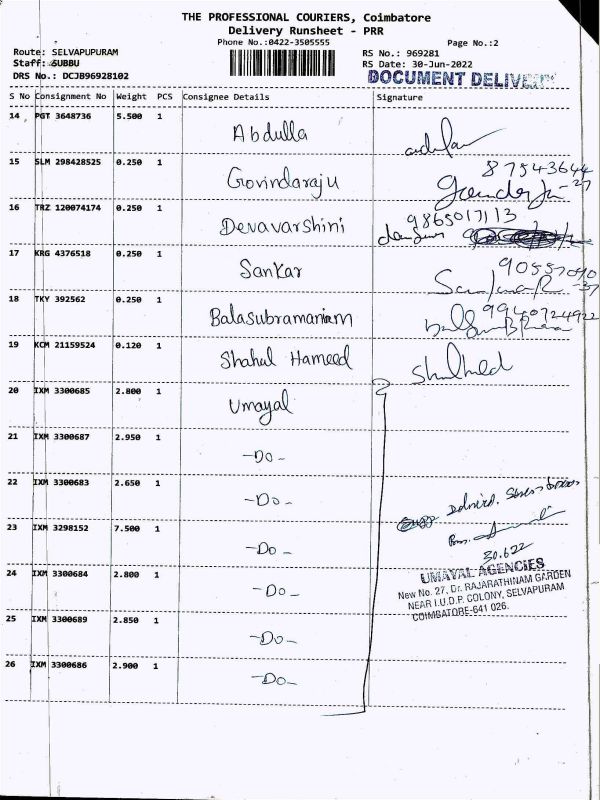 THE PROFESSIONAL COURIERS, Coimbatore
Delivery Runsheet - PRR
Phone No.:0422-3505555
Page No.:2
Route: SELVAPUPURAM
RS No.: 969281
Staff: SUBBU
RS Date: 30-Jun-2022
DRS No.: DCJB96928102
DOCUMENT DELIVERY
S No Consignment No Weight PCS Consignee Details Signature
14 PGT 3648736 5.500 1 Abdulla
15 SLM 298428525 0.250 1 Govindaraju
16 TRZ 120074174 0.250 1 Devavarshini 9865017113
17 KRG 4376518 0.250 1 Sankar
18 TKY 392562 0.250 1 Balasubramaniam 9940724922
19 KCM 21159524 0.120 1 Shahul Hameed
20 IXM 3300685 2.800 1 Umayal
21 IXM 3300687 2.950 1 -Do-
22 IXM 3300683 2.650 1 -Do-
23 IXM 3298152 7.500 1 -Do-
30.6.22
24 IXM 3300684 2.800 1 -Do-
UMAYAL AGENCIES
New No. 27, Dr. RAJARATHINAM GARDEN
NEAR I.U.D.P. COLONY, SELVAPURAM
COIMBATORE-641 026.
25 IXM 3300689 2.850 1 -Do-
26 IXM 3300686 2.900 1 -Do-